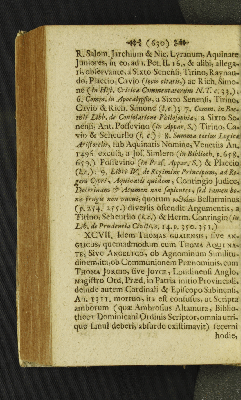 (630)
R. Salom. Jarchium & Nic. Lyranum, Aquinate
Juniores, in eo, ad 1. Pet. II. 16, & alibi, allega-
ti, observante, a Sixto Senensi, Tirino, Raynau-
do, Placcio, Cavio (locis citatis,) ac Rich. Simo-
ne (in Hist. Critica Commentatorum N. T. c. 33.)
6. Comm. in Apocalypsin, a Sixto Senensi, Tirino,
Cavio & Rich. Simone (l. c.) 7. Comm. in Boe-
thii Libb. de Consolatione Philosophiæ, a Sixto Se-
nensi, Ant. Possevino (in Appar. S.) Tirino, Ca-
vio & Scheurlio (l. c.) 8. Summa totius Logicæ
Aristotelis, sub Aquinatis Nomine, Venetiis An.
1496. excusa, a Jos. Simlero (in Biblioth.
659.) Possevino (in Appar. S.) & Placcio
(l. c.) 9. Libri IV. de Regimine Principum, ad Re-
gem Cypri, Aquinatis quidem, Contringio Judice,
Doctrinam & Acumen non sapientes, sed tamen bo-
næ frugis non vanos; quorum
(p. 254. 255.) diversis ostendit Argumentis, a
Tirino, Scheurlio (l. c.) & Herm. Contringio (in
Lib. de Prudentia Civili c. 14. p. 350. 351.)
XCVII. Idem THOMAS GUALENSIS, sive AN-
GLICUS, quemadmodum cum THOMA AQUINA-
TE, sive ANGELICO, ob Agnominum Similitu-
dinem, ita ob Communionem Prænominis, cum
THOMA JORZIO, sive JOYCE, Londinensi Anglo,
Magistro Ord. Præd. in Patria initio Provinciali,
deinde autem Cardinali & Episcopo Sabinensi,
An. 1311. mortuo, ita est confusus, ut Scripta
amborum (quæ Ambrosius Altamura, Biblio-
thecæ Dominicanæ Ordinis Scriptor, omnia utri-
que simul deberi, absurde existimavit) secerni
hodie,